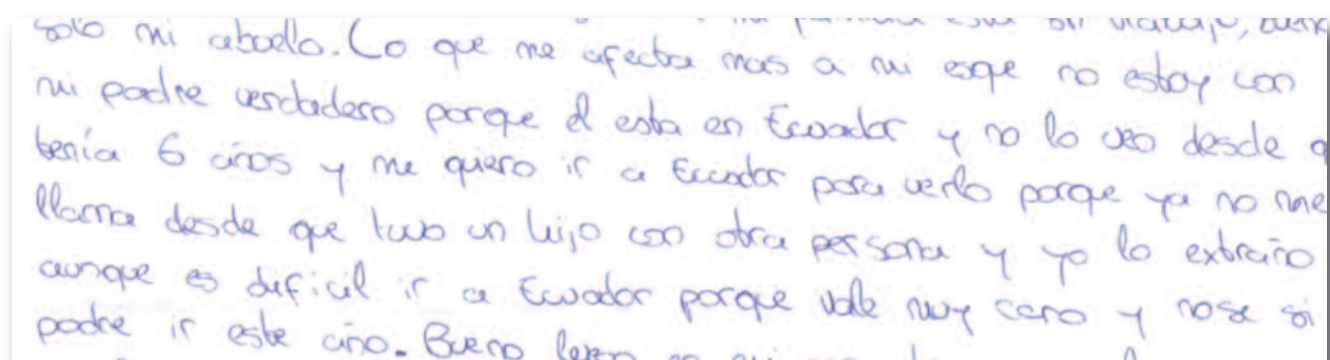 mi familia esta sin trabajo,
solo mi abuelo. Lo que me afecta mas a mi esqe no estoy con
mi padre verdadero porqe el esta en Ecuador y no lo veo desde q
tenía 6 años y me quiero ir a Ecuador para verlo porqe ya no me
llama desde que tuvo un hijo con otra persona y yo lo extraño
aunqe es dificil ir a Ecuador porqe vale muy caro y nose si
podre ir este año. Bueno